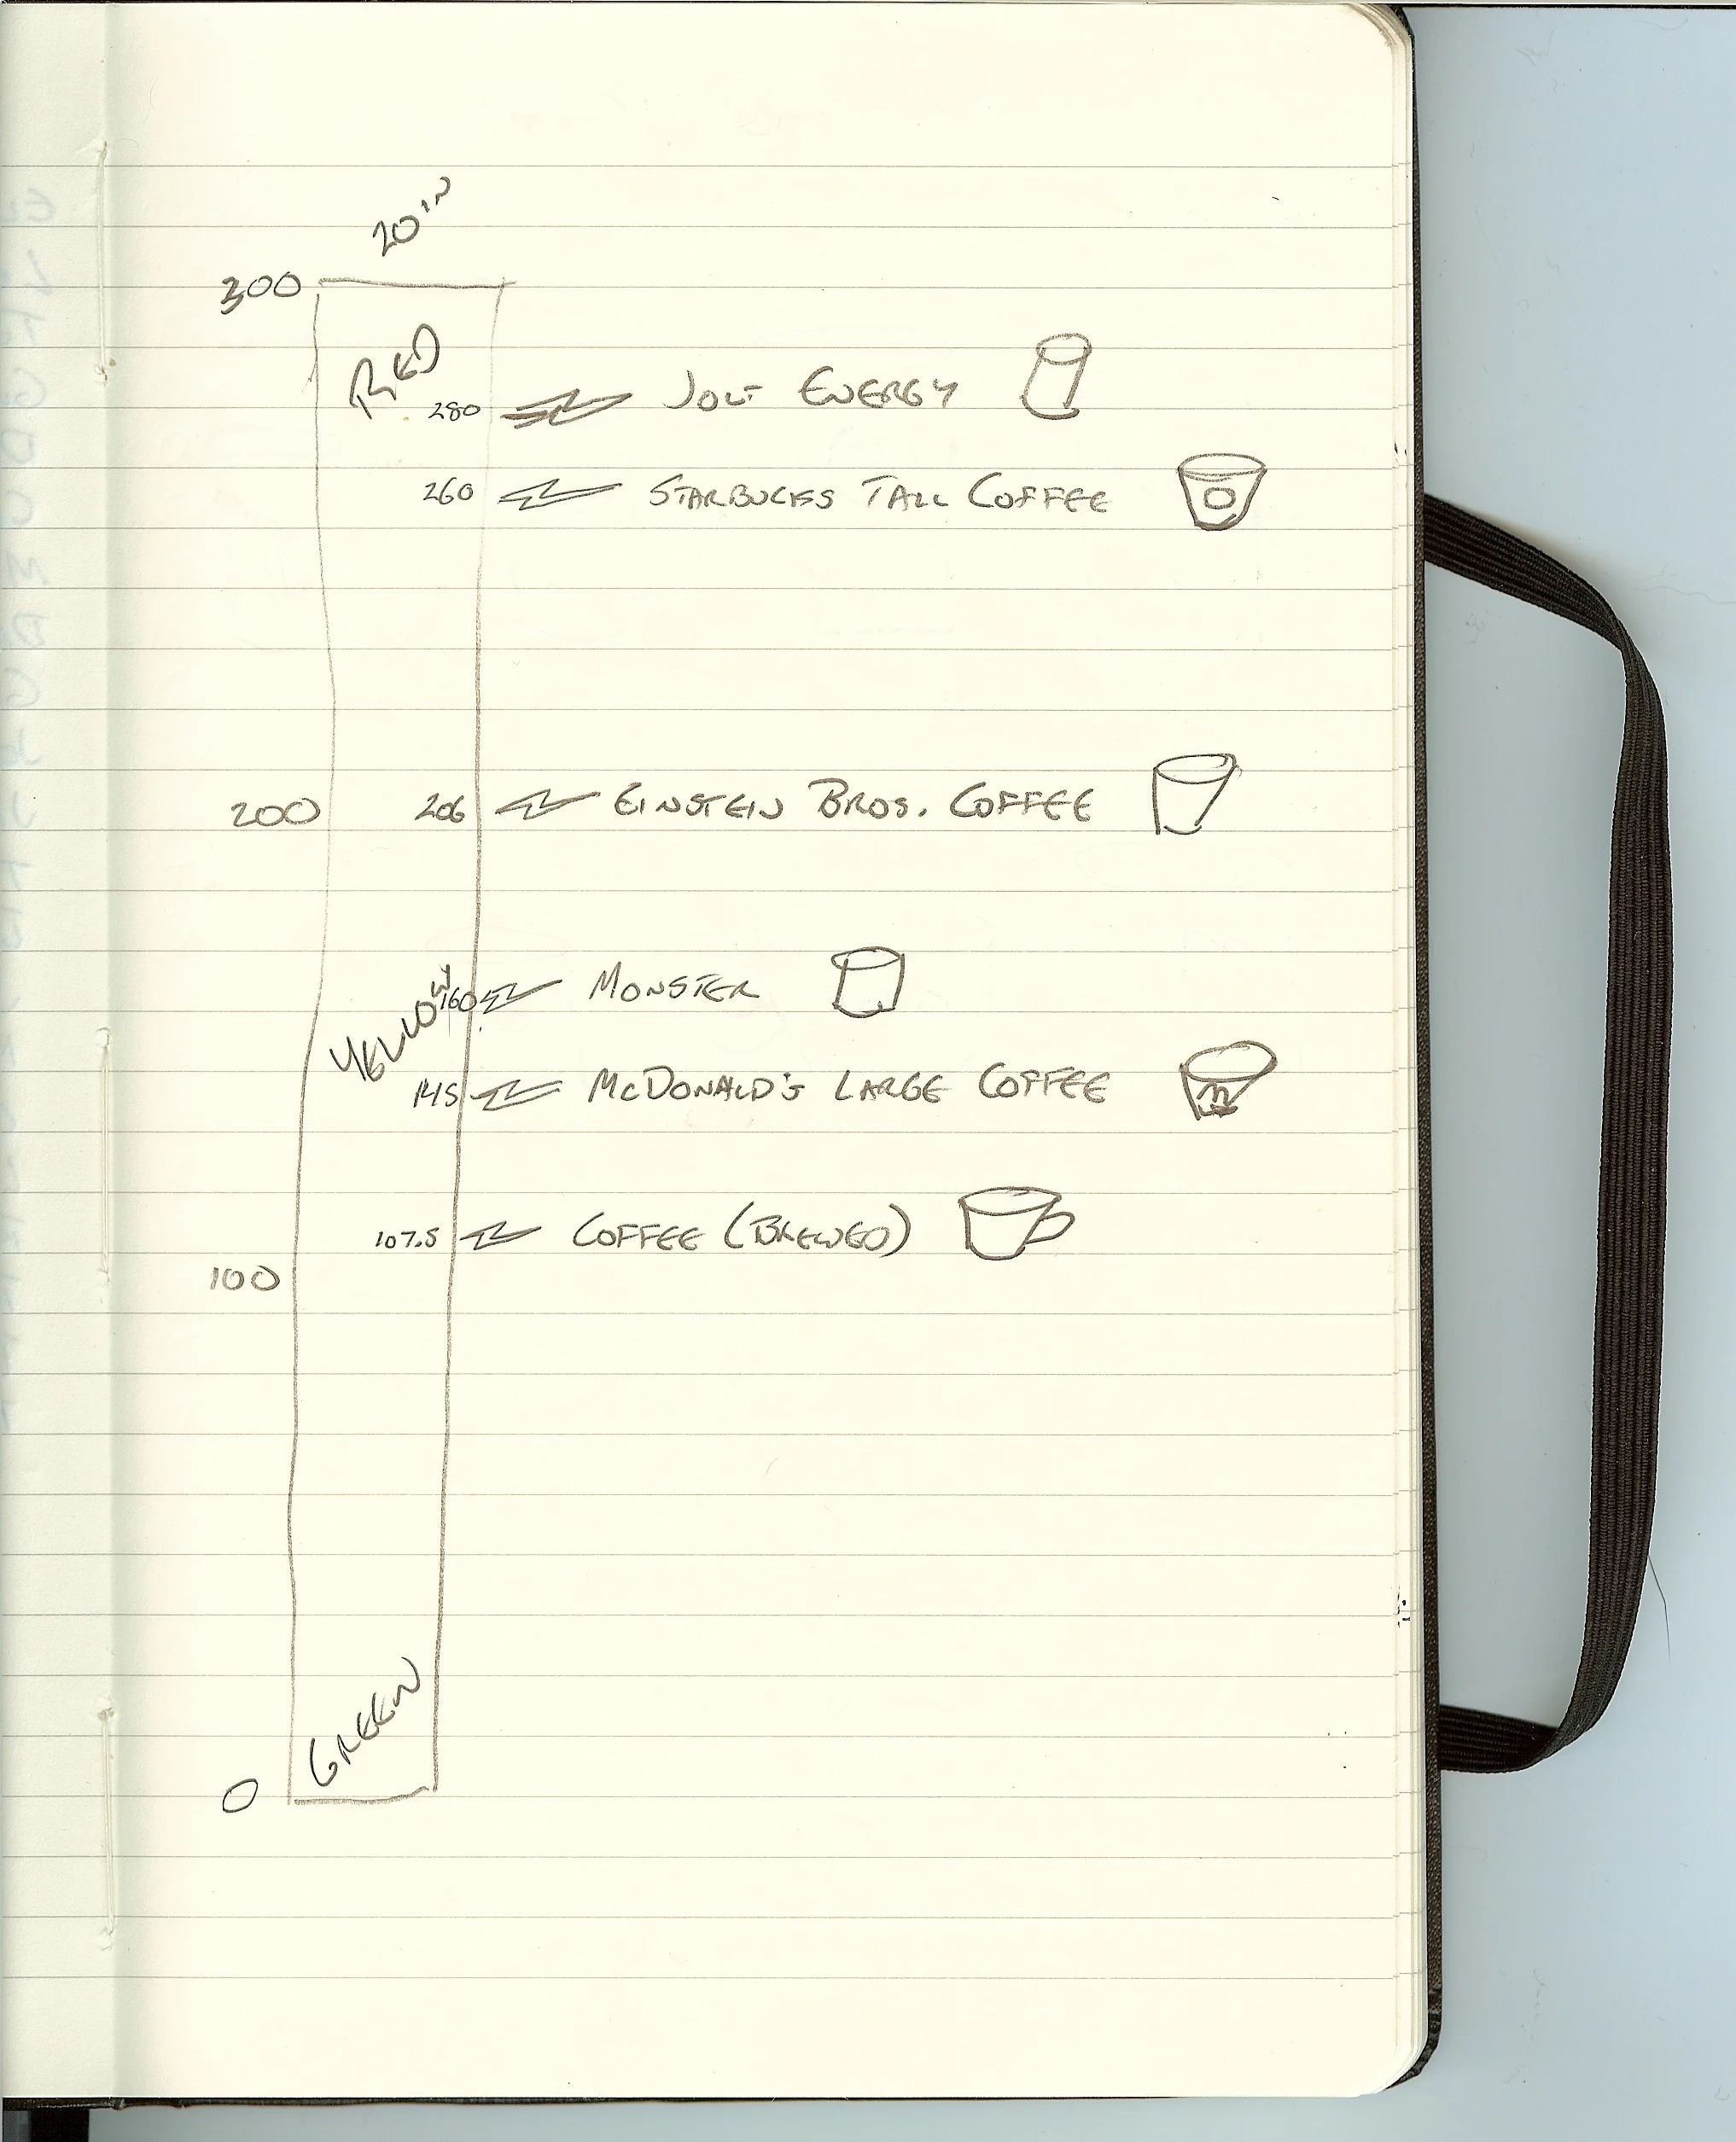 20 IN
300
RED
280 JOLT ENERGY
260 STARBUCKS TALL COFFEE
200 206 EINSTEIN BROS. COFFEE
160 MONSTER
YELLOW
145 MCDONALD'S LARGE COFFEE
M
107.5 COFFEE (BREWED)
100
GREEN
0